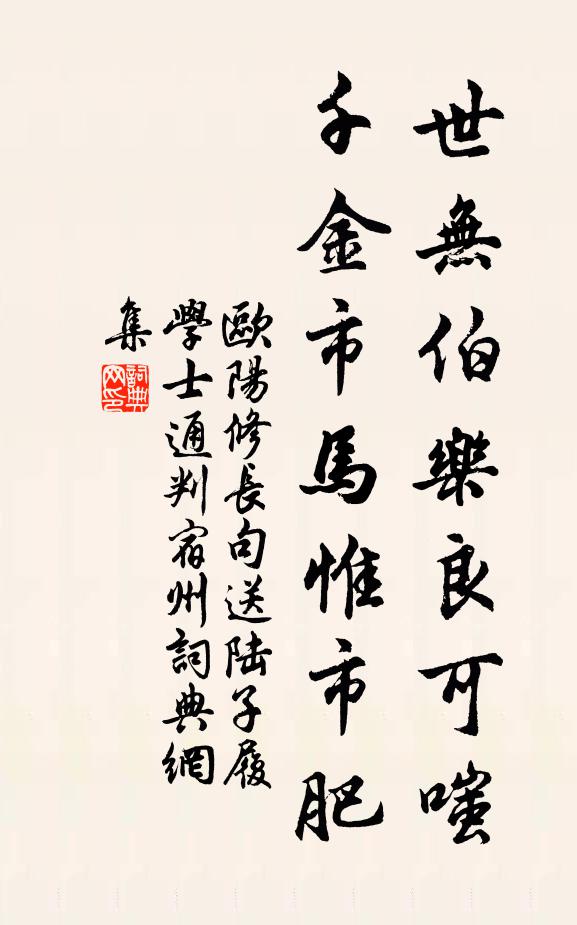 世無伯樂良可嗤
千金市馬惟市肥
歐陽修長句送陸子履
學士通判宿州詞典網
集
詞典
网印